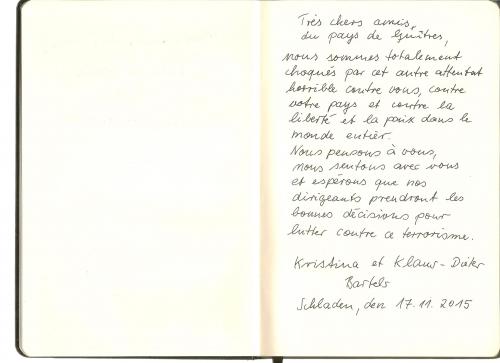 Très chers amis,
du pays de Guîtres,
nous sommes totalement
choqués par cet autre attentat
horrible contre vous, contre
votre pays et contre la
liberté et la paix dans le
monde entier.
Nous pensons à vous,
nous sentons avec vous
et espérons que nos
dirigeants prendront les
bonnes décisions pour
lutter contre ce terrorisme.
Kristina et Klaus-Dieter
Bartels
Schladen, den 17.11.2015